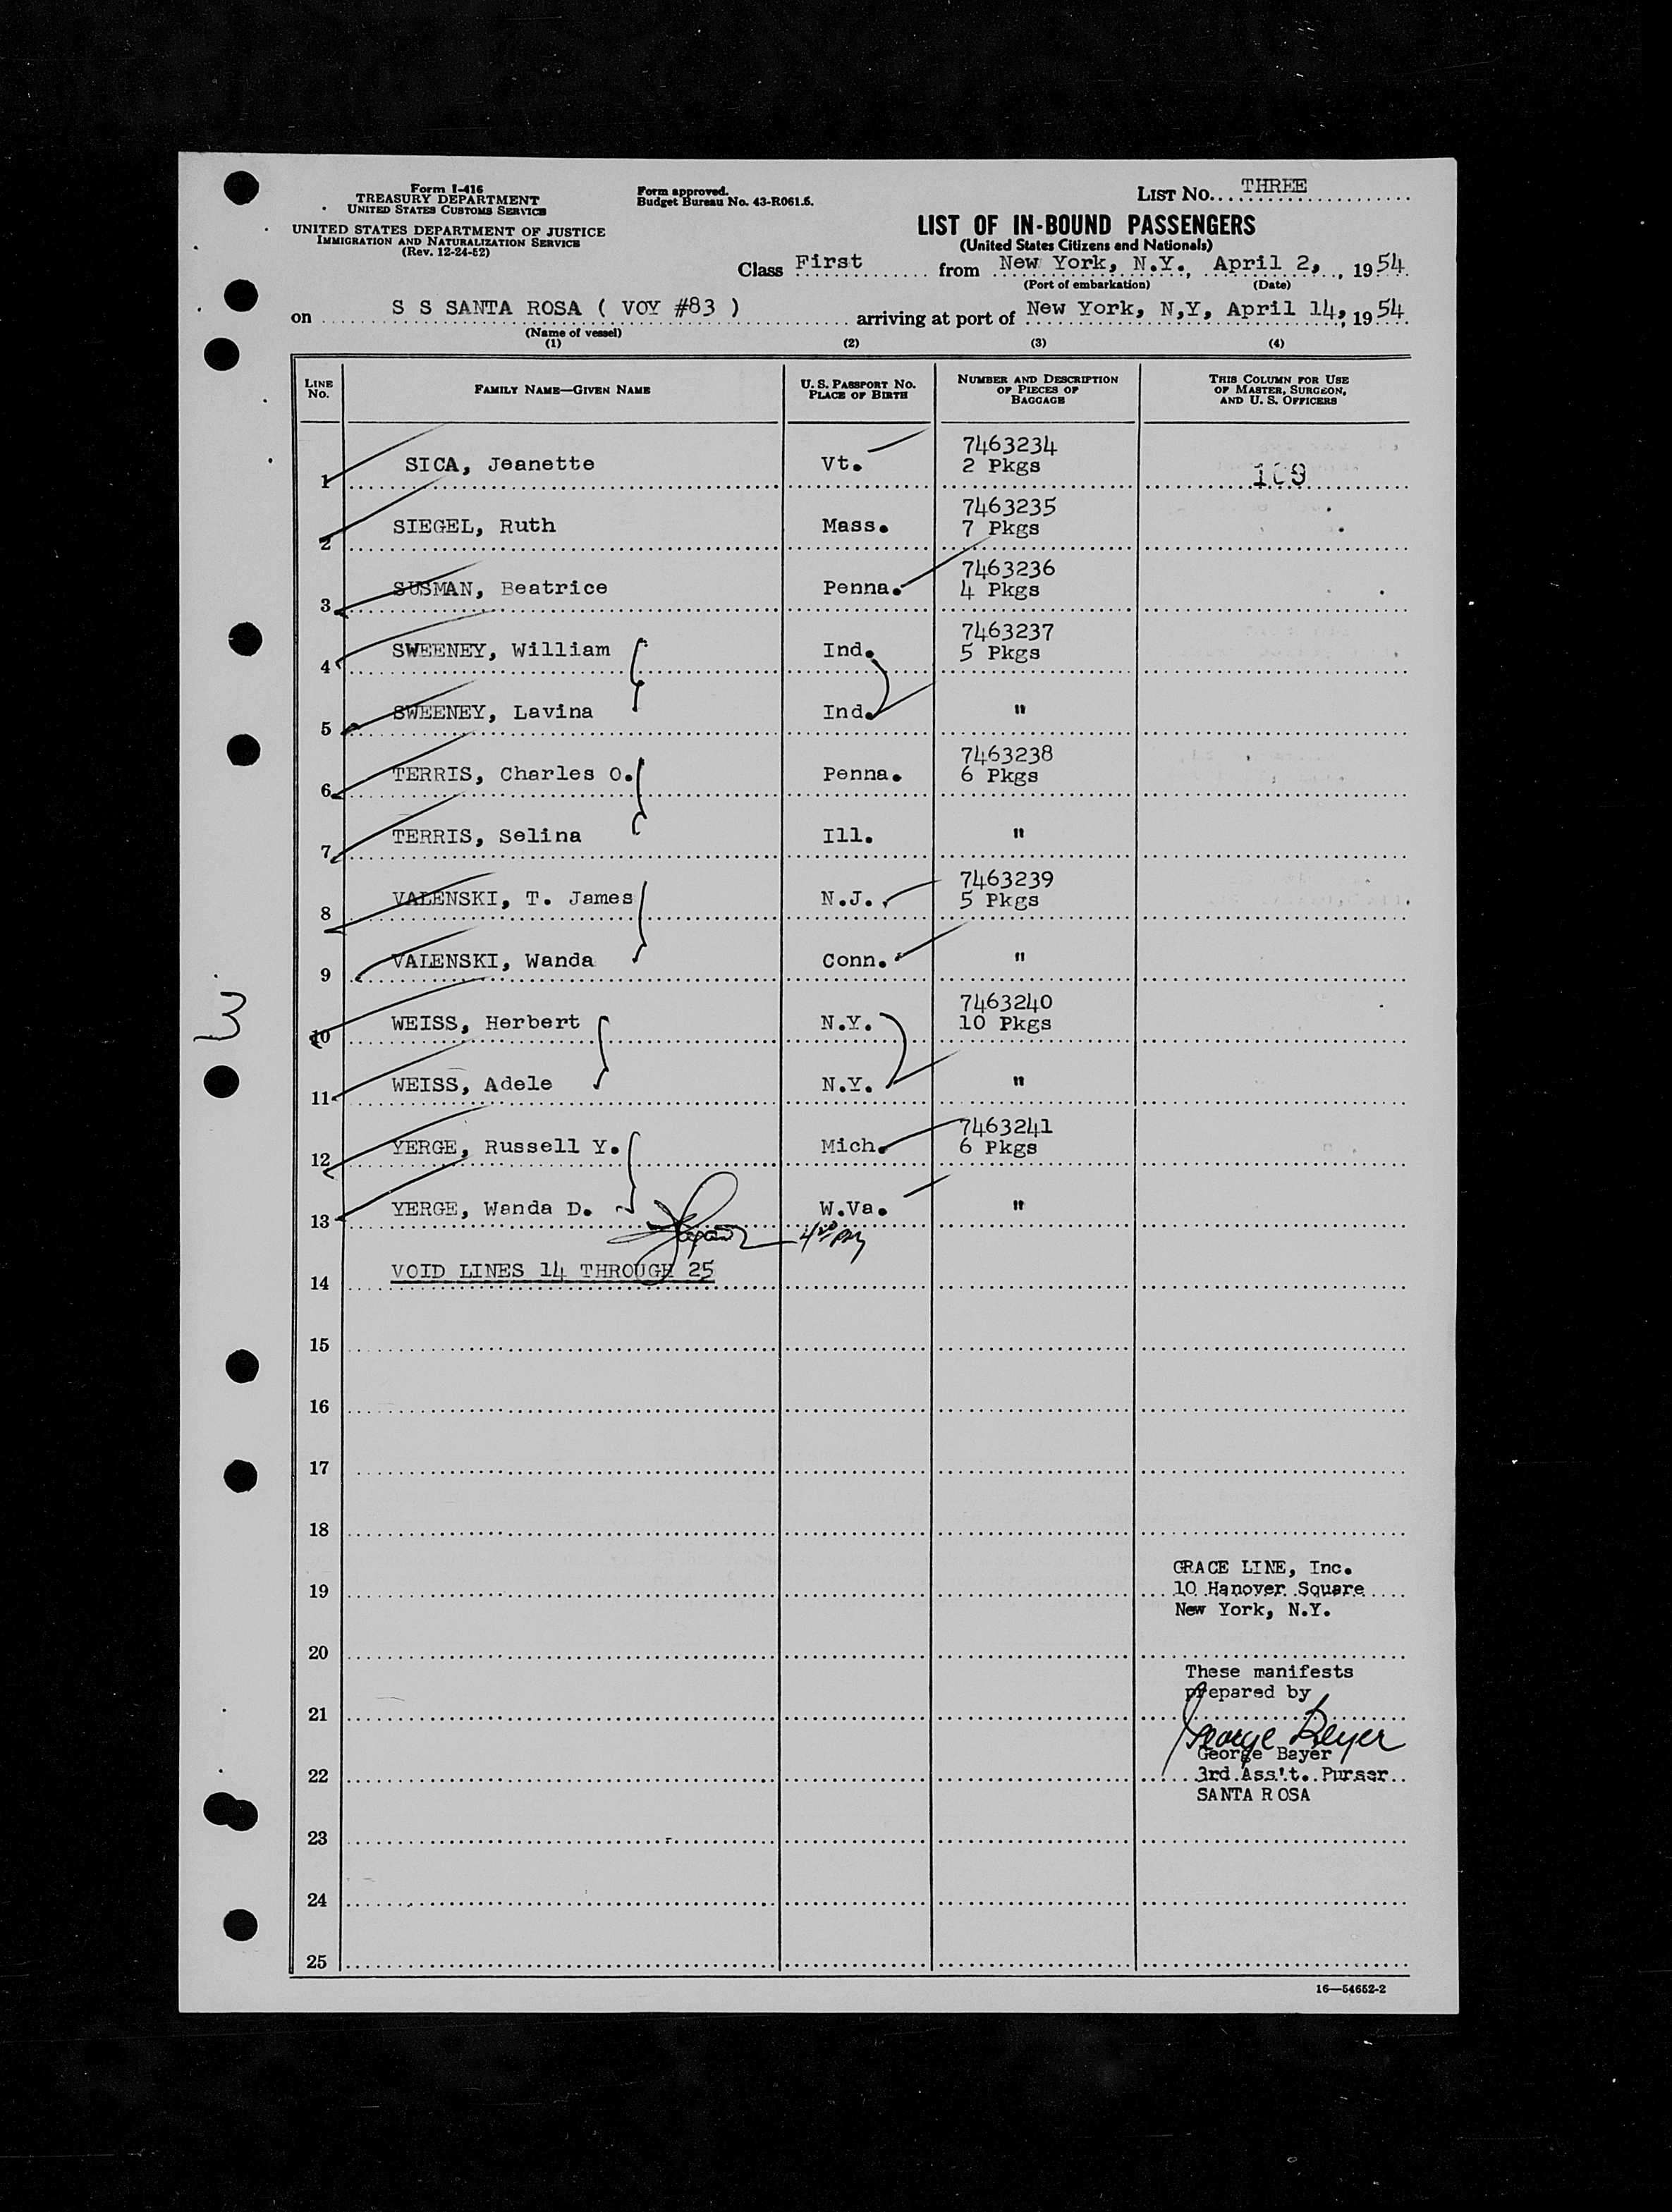 Form I-416
TREASURY DEPARTMENT
UNITED STATES CUSTOMS SERVICE
UNITED STATES DEPARTMENT OF JUSTICE
IMMIGRATION AND NATURALIZATION SERVICE
(Rev. 12-24-52)
Form approved.
Budget Bureau No. 43-R061.5.
LIST No. THREE
LIST OF IN-BOUND PASSENGERS
(United States Citizens and Nationals)
Class First from New York, N.Y., April 2, , 1954
(Port of embarkation) (Date)
on S S SANTA ROSA ( VOY #83 ) arriving at port of New York, N,Y, April 14, , 1954
(Name of vessel)
(1) (2) (3) (4)
LINE No. FAMILY NAME—GIVEN NAME U. S. PASSPORT No. PLACE OF BIRTH NUMBER AND DESCRIPTION OF PIECES OF BAGGAGE THIS COLUMN FOR USE OF MASTER, SURGEON, AND U. S. OFFICERS
7463234
1 SICA, Jeanette Vt. 2 Pkgs 109
7463235
2 SIEGEL, Ruth Mass. 7 Pkgs
7463236
3 SUSMAN, Beatrice Penna. 4 Pkgs
7463237
4 SWEENEY, William Ind. 5 Pkgs
5 SWEENEY, Lavina Ind. "
7463238
6 TERRIS, Charles O. Penna. 6 Pkgs
7 TERRIS, Selina Ill. "
7463239
8 VALENSKI, T. James N.J. 5 Pkgs
9 VALENSKI, Wanda Conn. "
3
7463240
10 WEISS, Herbert N.Y. 10 Pkgs
11 WEISS, Adele N.Y. "
7463241
12 YERGE, Russell Y. Mich. 6 Pkgs
13 YERGE, Wanda D. W.Va. "
14 VOID LINES 14 THROUGH 25
15
16
17
18
GRACE LINE, Inc.
19 10 Hanover Square
New York, N.Y.
20
These manifests
prepared by
21
George Beyer
George Bayer
22 3rd Ass't. Purser
SANTA ROSA
23
24
25
16—54652-2